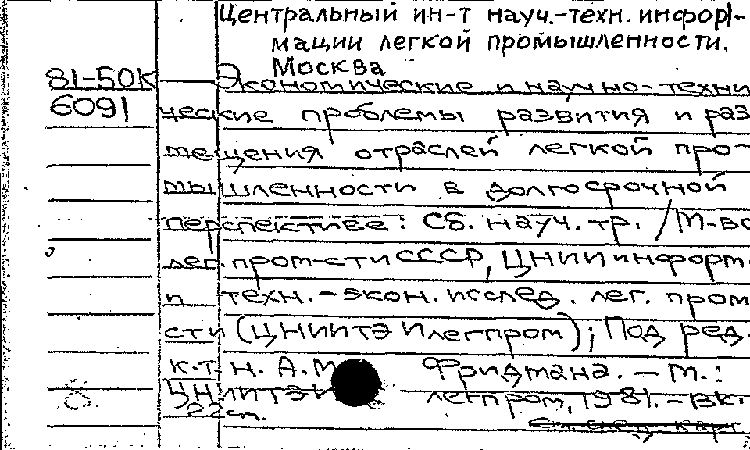 Центральный ин-т науч.-техн. инфор-
мации легкой промышленности.
Москва
81-50к Экономические и научно-техни
6091 ческие проблемы развития и раз
мещения отраслей легкой про-
мышленности в долгосрочной
перспективе: Сб. науч. тр. / М-во
лег. пром-сти СССР, ЦНИИ информ.
и техн.-экон. исслед. лег. пром
сти (ЦНИИТЭИлегпром); Под ред.
к.т.н. А.М. Фридмана. - М.:
ЦНИИТЭИлегпром, 1981. - Вкт
22см.